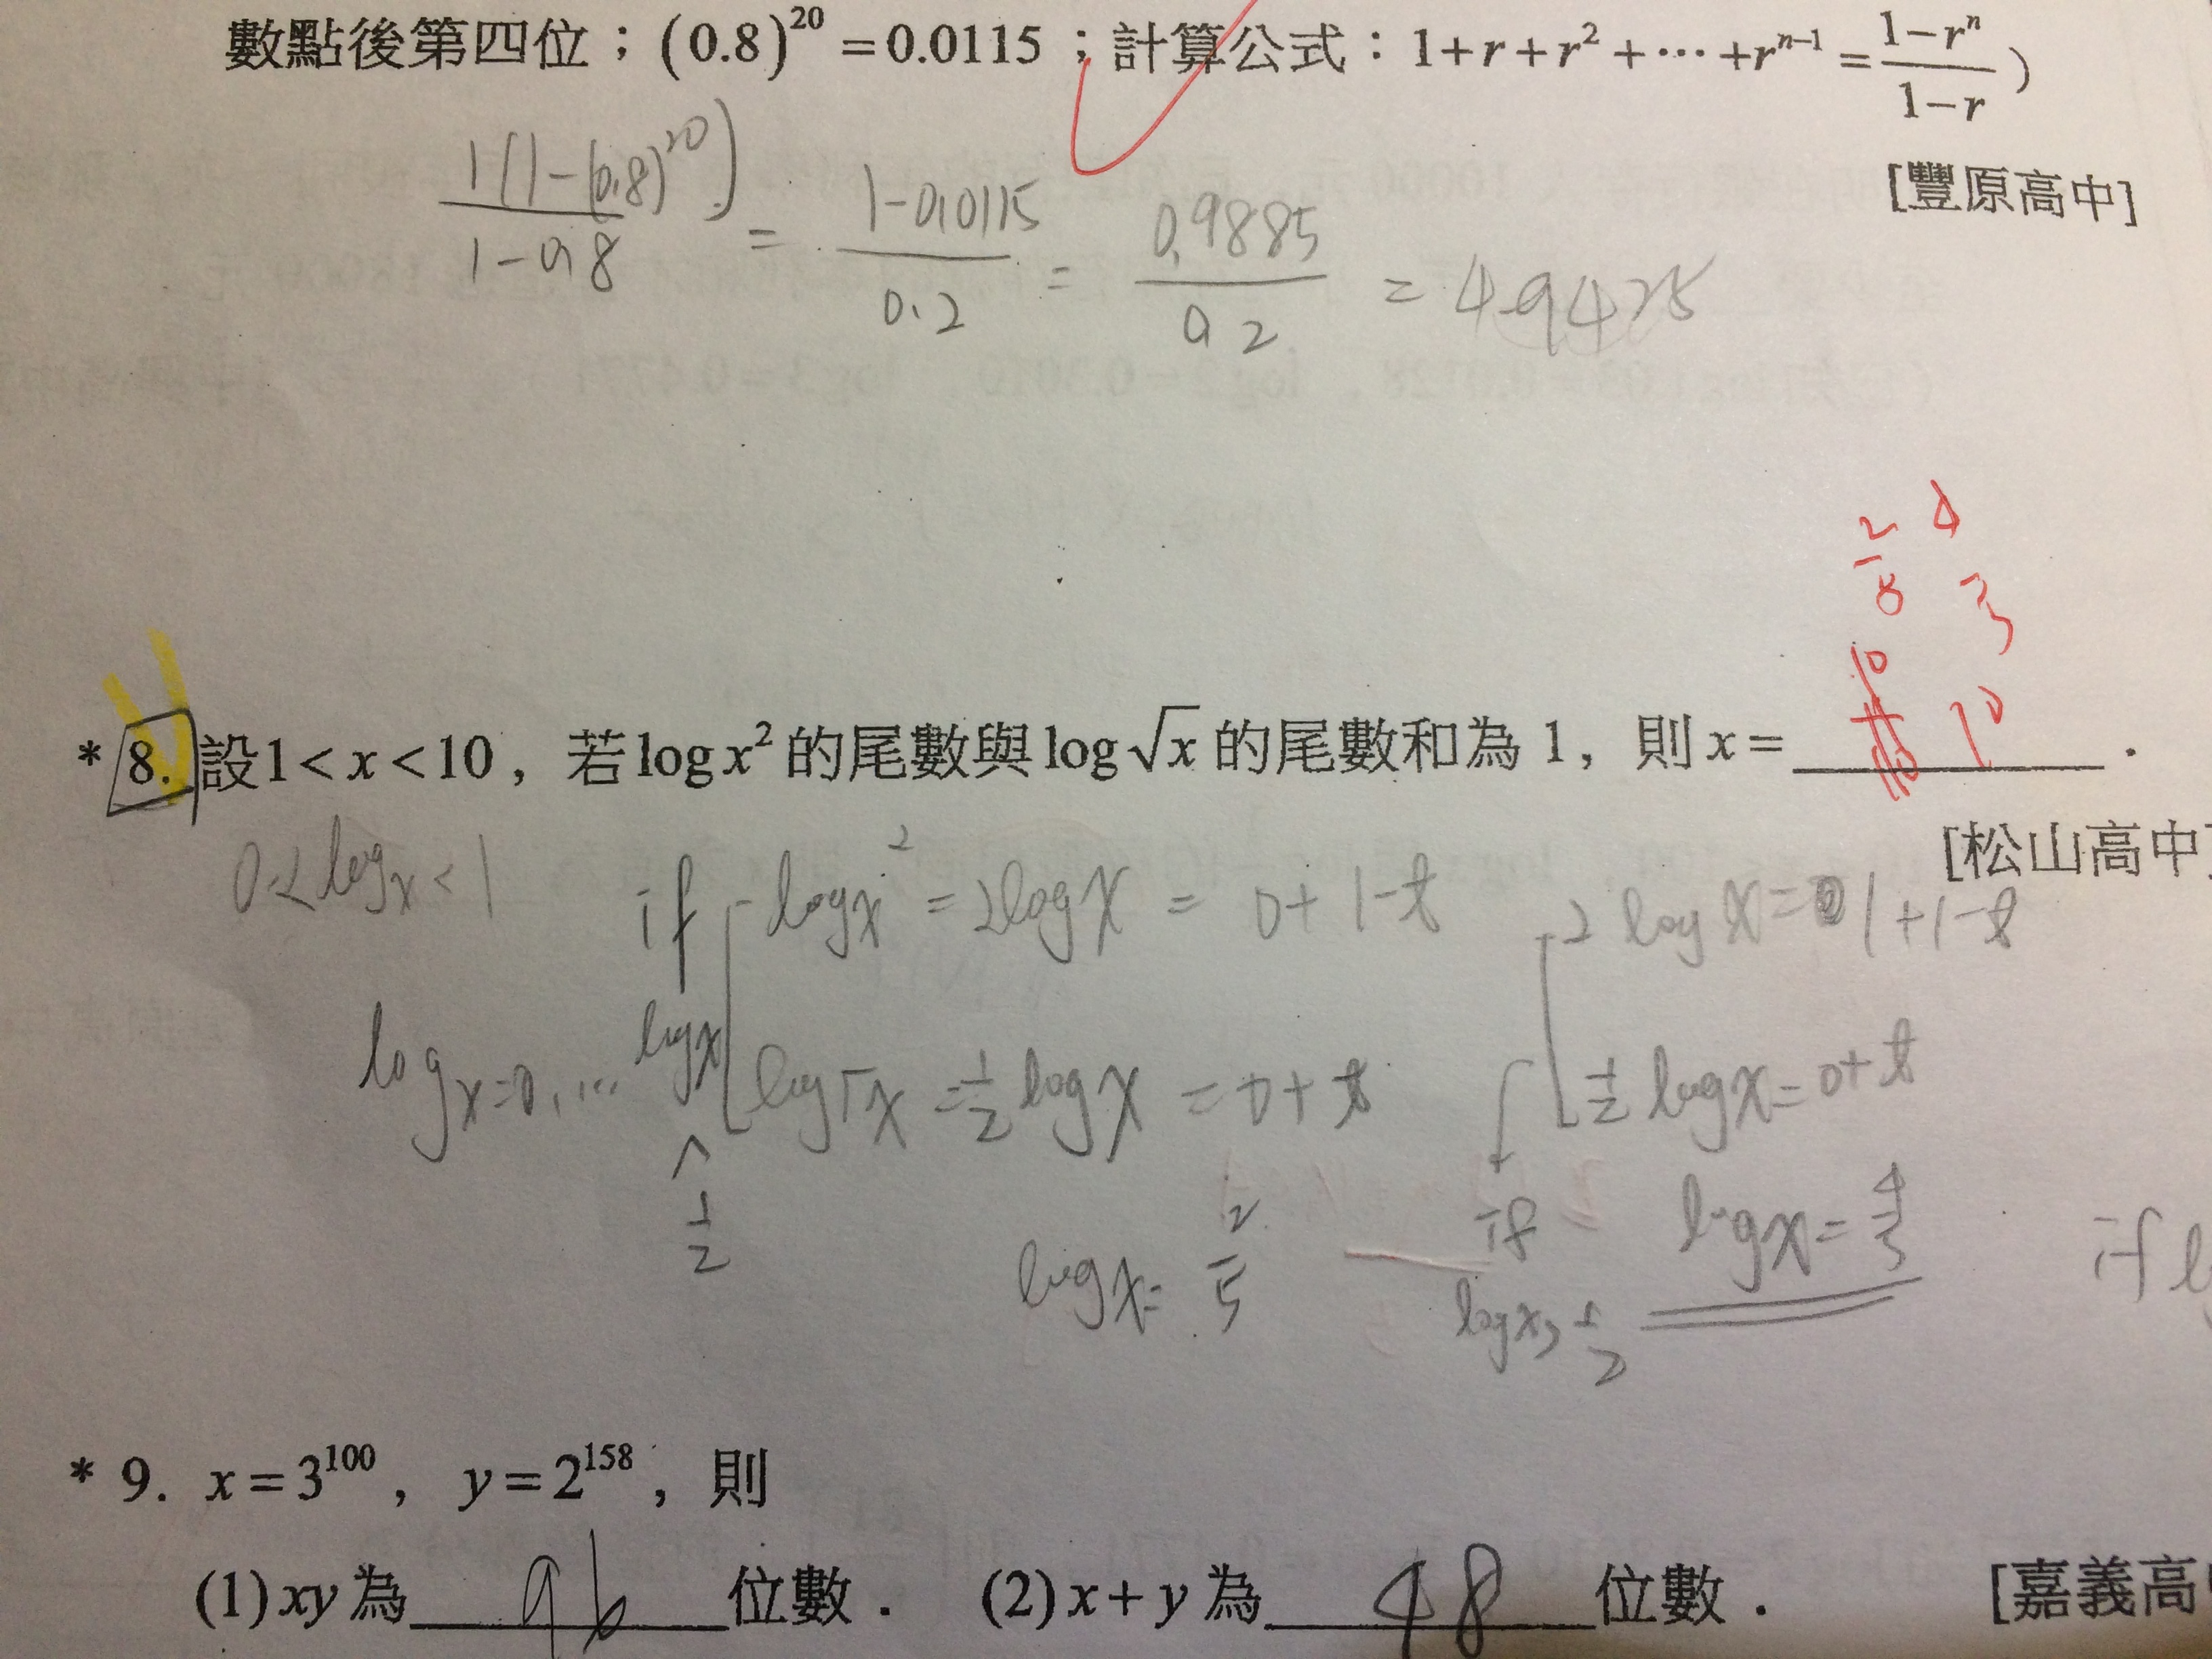 數點後第四位；(0.8)^20 = 0.0115；計算公式：1+r+r^2+⋯+r^{n-1} = (1-r^n)/(1-r))
[豐原高中]
1(1-(0.8)^20)/(1-0.8) = (1-0.0115)/0.2 = 0.9885/0.2 = 4.9425
2/5 4/3
10 10
* 8. 設1<x<10，若log x^2 的尾數與log √x 的尾數和為 1，則 x = ______．
[松山高中]
0<log x<1 if log x^2 = 2log x = 0+1-t 2log x = 1+1-t
log x=0.... log x < 1/2 log√x = 1/2 log x = 0+t 1/2 log x = 0+t
log x = 2/5 if log x > 1/2 log x = 4/3 if
* 9. x=3^100，y=2^158，則
(1) xy 為 96 位數． (2) x+y 為 48 位數． [嘉義高